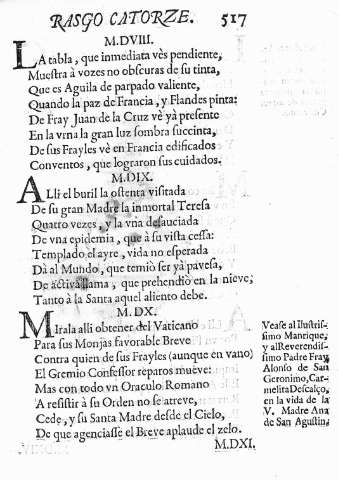 RASGO CATORZE. 517
M.DVIII.
LA tabla, que inmediata vès pendiente,
Muestra à vozes no obscuras de su tinta,
Que es Aguila de parpado valiente,
Quando la paz de Francia, y Flandes pinta:
De Fray Juan de la Cruz vè yà presente
En la vrna la gran luz sombra succinta,
De sus Frayles vè en Francia edificados
Conventos, que lograron sus cuidados.
M.DIX.
ALli el buril la ostenta visitada
De su gran Madre la inmortal Teresa
Quatro vezes, y la vna desauciada
De vna epidemia, que à su vista cessa:
Templado el ayre, vida no esperada
Dà al Mundo, que temiò ser yà pavesa,
De activa llama, que prehendiò en la nieve;
Tanto à la Santa aquel aliento debe.
M.DX.
MIrala alli obtener del Vaticano
Para sus Monjas favorable Breve
Contra quien de sus Frayles (aunque en vano)
El Gremio Confessor reparos mueve:
Mas con todo vn Oraculo Romano
A resistir à su Orden no se atreve,
Cede, y su Santa Madre desde el Cielo,
De que agenciasse el Breve aplaude el zelo.
M.DXI.
Vease al Ilustris-
simo Manrique,
y al Reverendis-
simo Padre Fray
Alonso de San
Geronimo, Car-
melita Descalço,
en la vida de la
V. Madre Ana
de San Agustin.